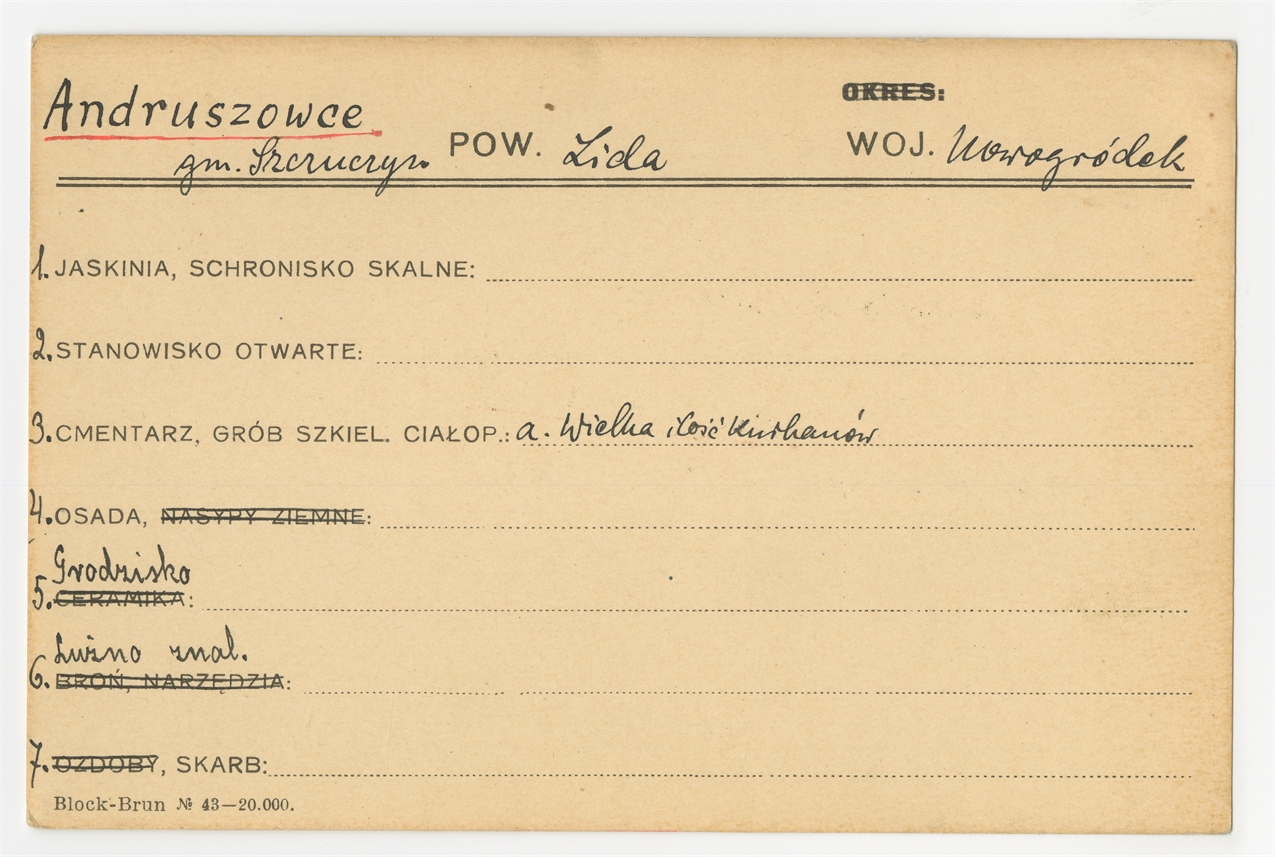 Andruszowce
OKRES:
gm. Szczuczyn POW. Lida WOJ. Nowogródek
1. JASKINIA, SCHRONISKO SKALNE:
2. STANOWISKO OTWARTE:
3. CMENTARZ, GRÓB SZKIEL. CIAŁOP.: a. Wielka ilość kurhanów
4. OSADA, NASYPY ZIEMNE:
Grodzisko
5. CERAMIKA:
Luźno znal.
6. BROŃ, NARZĘDZIA:
7. OZDOBY, SKARB:
Block-Brun № 43—20.000.